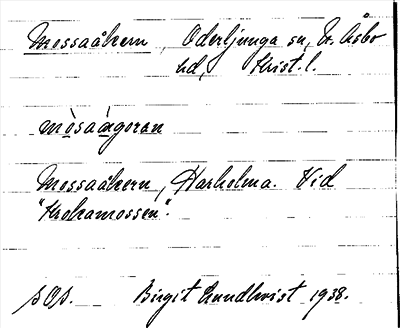 Mossaåkern, Oderljunga sn, N. Åsbo
hd, Krist. l.
mòsaágoran
Mossaåkern, Harholma. Vid
"Krokamossen".
SOS. Birgit Lundkvist 1938.